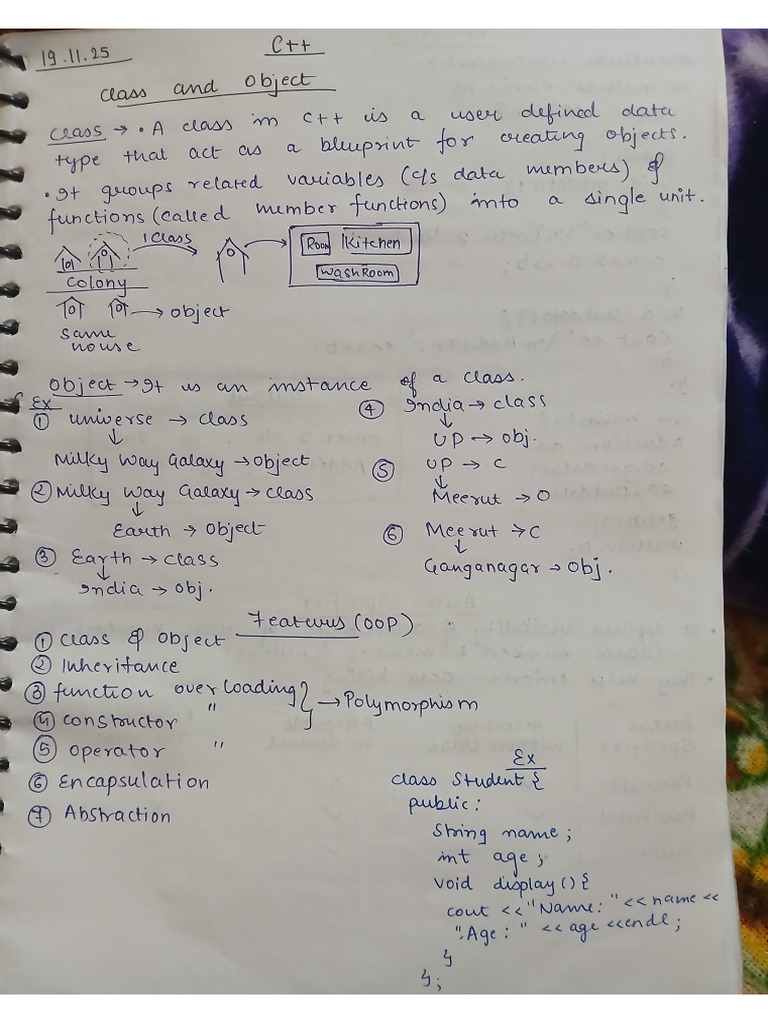 19.11.25
C++
class and object
class → • A class in C++ is a user defined data
type that act as a blueprint for creating objects.
• It groups related variables (c/s data members) &
functions (called member functions) into a single unit.
1 class
Room Kitchen
WashRoom
Colony
→ object
same
house
object → It is an instance of a class.
Ex
① universe → class
↓
Milky Way Galaxy → object
② Milky Way Galaxy → class
↓
Earth → object
③ Earth → class
↓
India → obj.
④ India → class
↓
UP → obj.
⑤ UP → C
↓
Meerut → O
⑥ Meerut → C
↓
Ganganagar → obj.
Features (OOP)
① class & object
② Inheritance
③ function overloading } → Polymorphism
④ constructor "
⑤ operator "
⑥ Encapsulation
⑦ Abstraction
Ex
class Student {
public:
String name;
int age;
void display() {
cout << "Name: " << name <<
".Age: " << age << endl;
}
};